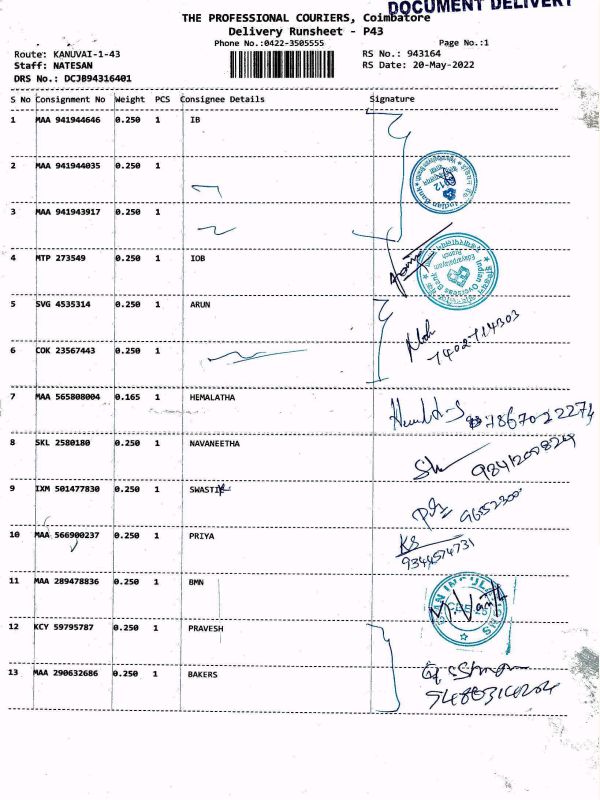 DOCUMENT DELIVERY
THE PROFESSIONAL COURIERS, Coimbatore
Delivery Runsheet - P43
Phone No.:0422-3505555
Page No.:1
Route: KANUVAI-1-43
RS No.: 943164
Staff: NATESAN
RS Date: 20-May-2022
DRS No.: DCJB94316401
S No Consignment No Weight PCS Consignee Details Signature
1 MAA 941944646 0.250 1 IB
2 MAA 941944035 0.250 1
3 MAA 941943917 0.250 1
4 MTP 273549 0.250 1 IOB
5 SVG 4535314 0.250 1 ARUN
7402714303
6 COK 23567443 0.250 1
7 MAA 565808004 0.165 1 HEMALATHA
78670-22274
8 SKL 2580180 0.250 1 NAVANEETHA
9 IXM 501477830 0.250 1 SWASTIK
10 MAA 566900237 0.250 1 PRIYA
KS
9344574731
11 MAA 289478836 0.250 1 BMN
12 KCY 59795787 0.250 1 PRAVESH
13 MAA 290632686 0.250 1 BAKERS
Indian Bank
Indian Overseas Bank
Edayarpalayam
Branch